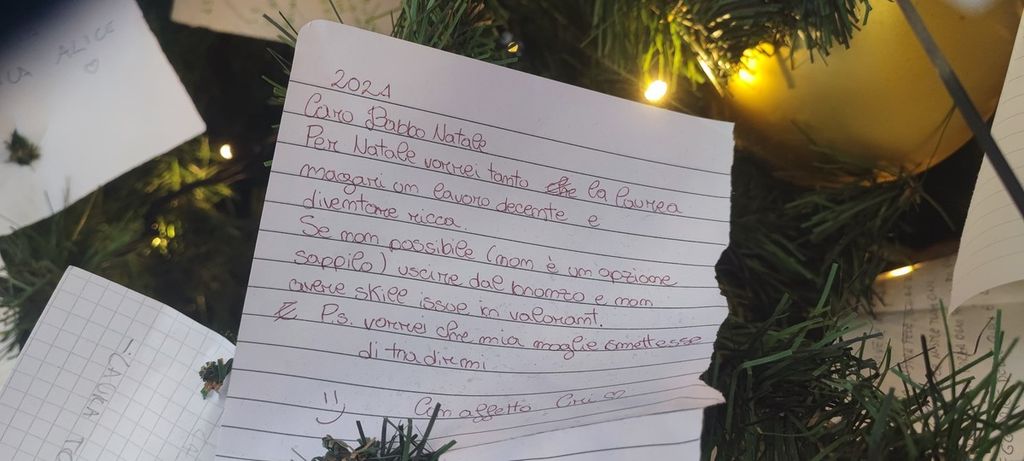 ALICE
2021
Caro Babbo Natale
Per Natale vorrei tanto la laurea
magari un lavoro decente e
diventare ricca.
Se non possibile (non è un opzione
sappilo) uscire dal bronzo e non
avere skill issue in valorant.
P.s. vorrei che mia moglie smettesse
di tradirmi
:)
Con affetto Cri ♡